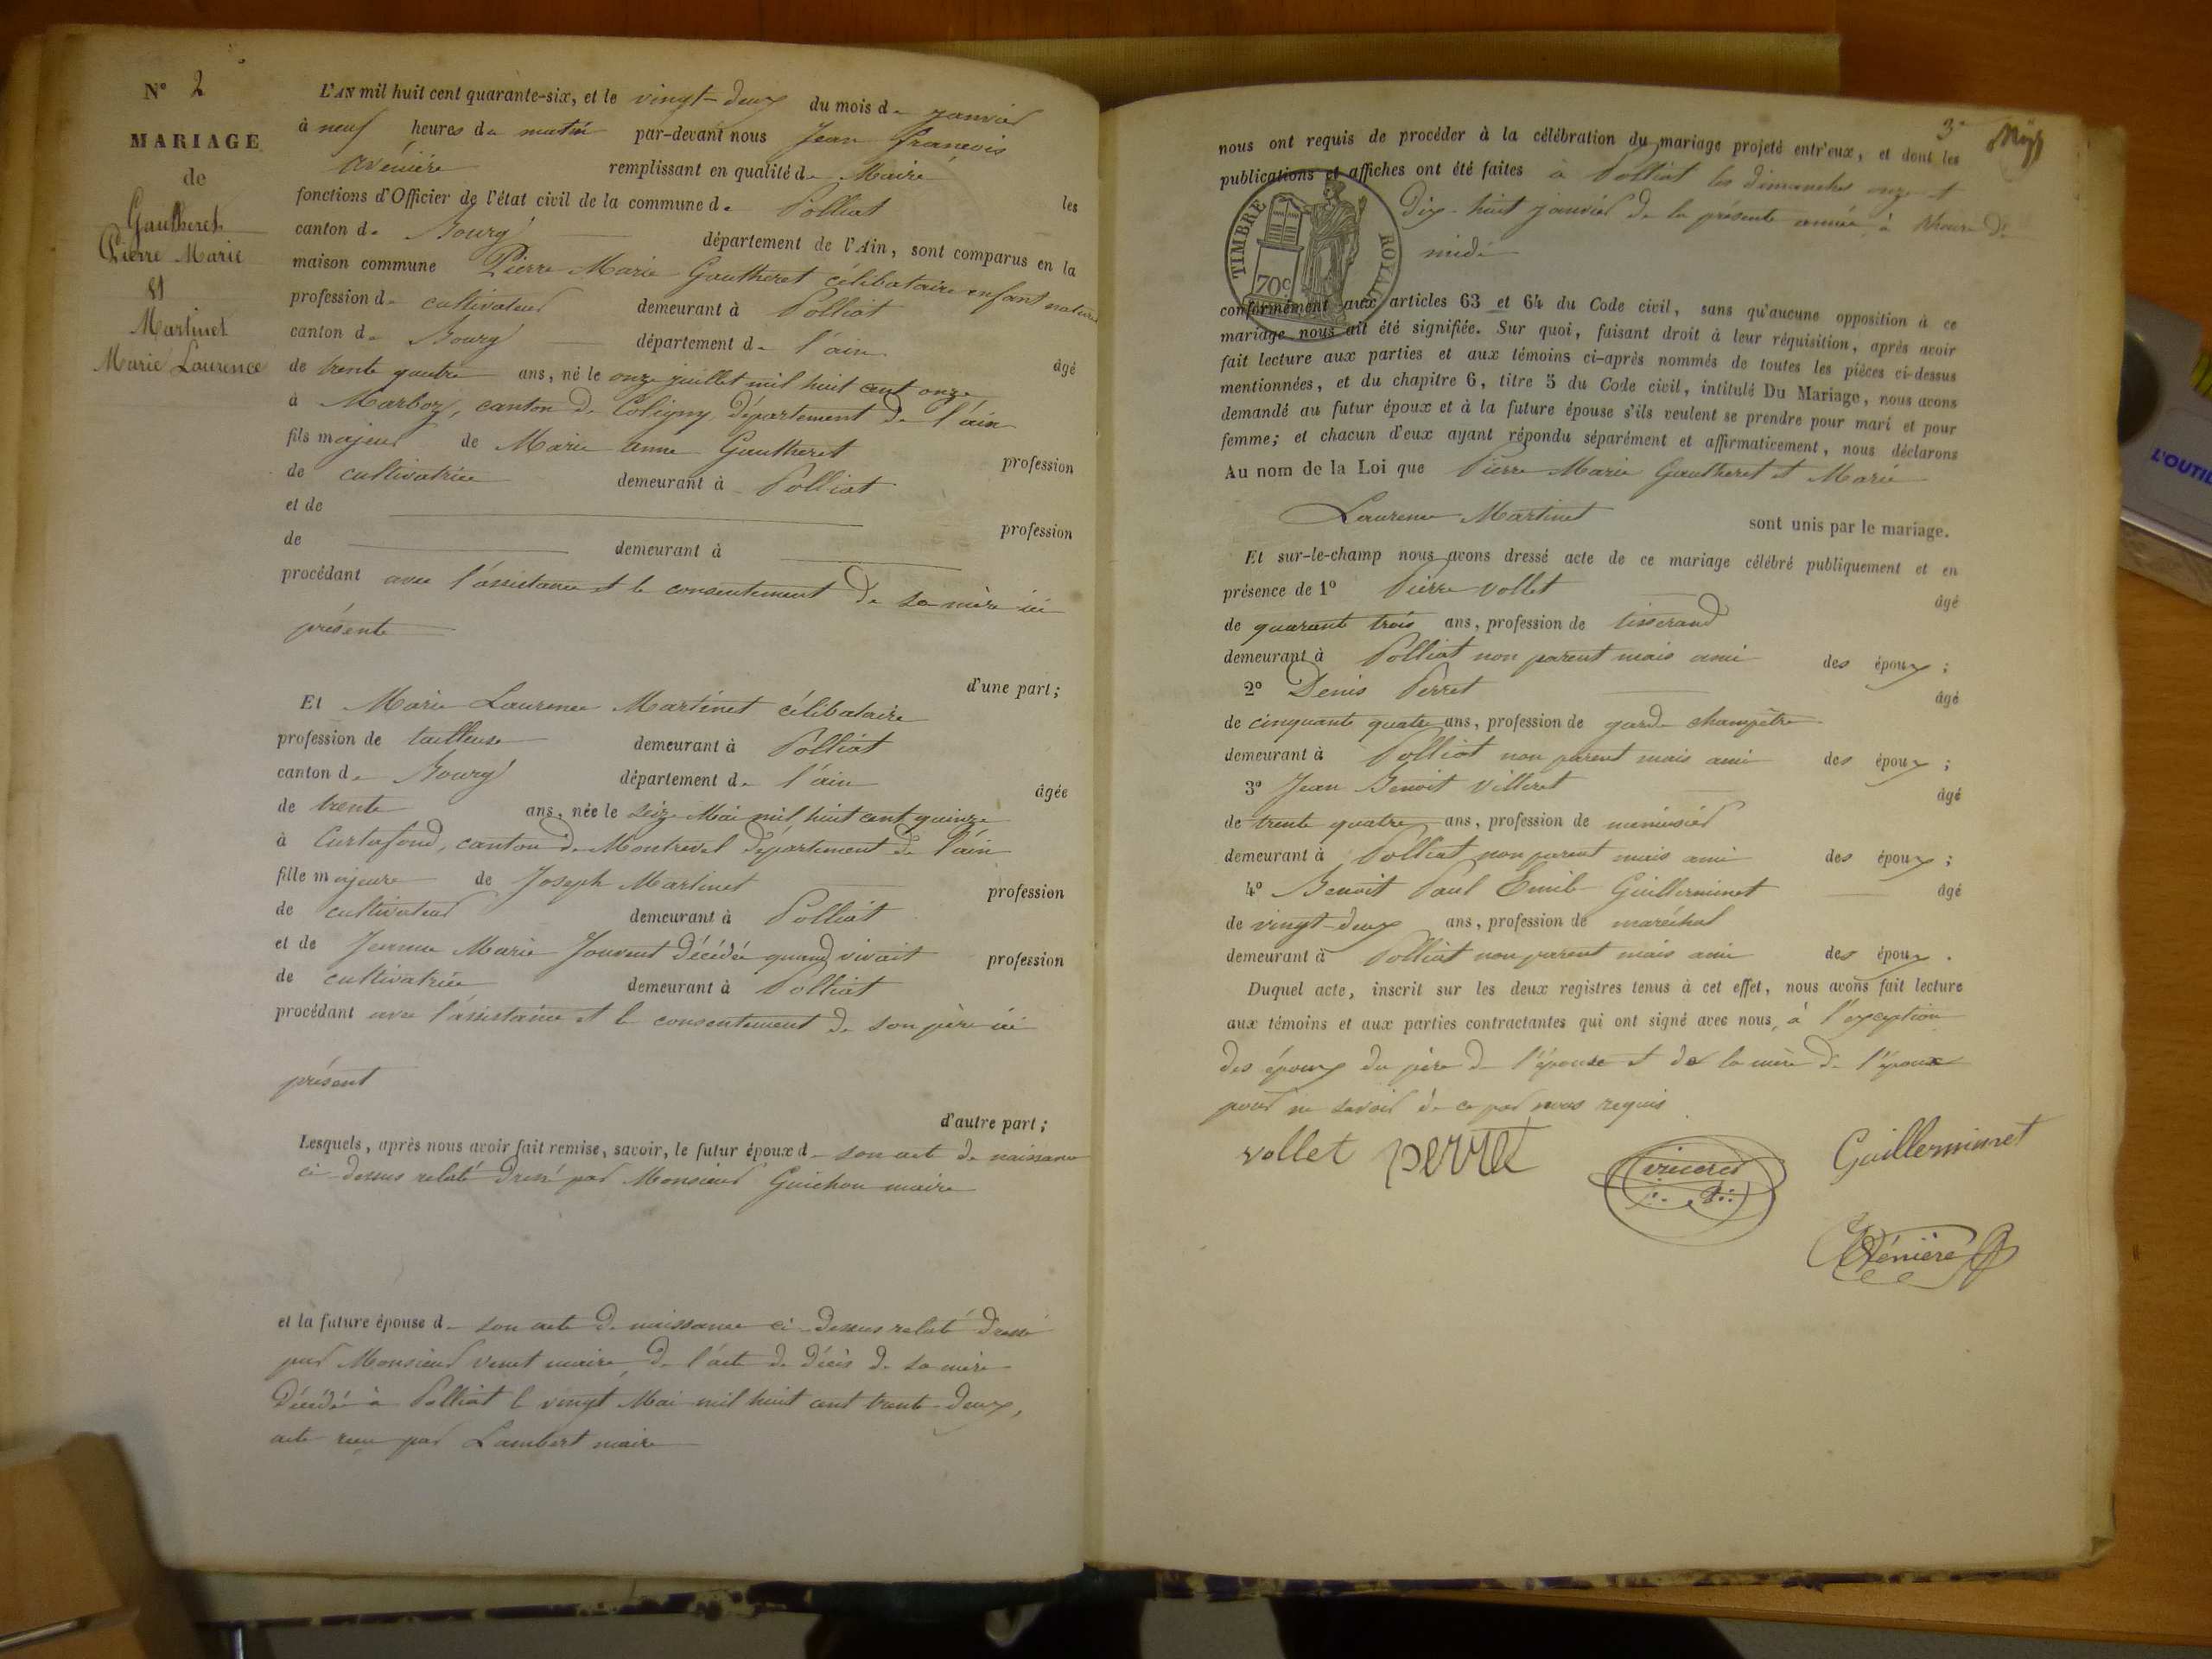 N° 2
MARIAGE
de
Gautheret
Pierre Marie
Et
Martinet
Marie Laurence
L'AN mil huit cent quarante-six, et le vingt-deux du mois de janvier
à neuf heures du matin par-devant nous Jean françois
avénière remplissant en qualité de Maire les
fonctions d'Officier de l'état civil de la commune de Polliat
canton de Bourg département de l'Ain, sont comparus en la
maison commune Pierre Marie Gautheret célibataire enfant naturel
profession de cultivateur demeurant à Polliat
canton de Bourg départcment de l'ain âgé
de trente quatre ans, né le onze juillet mil huit cent onze
à Marboz, canton de Coligny, département de l'ain
fils majeur de Marie anne Gautheret profession
de cultivatrice demeurant à Polliat
et de profession
de demeurant à
procédant avec l'assistance et le consentement de sa mère ici
présente
d'une part;
Et Marie Laurence Martinet célibataire
profession de tailleuse demeurant à Polliat
canton de Bourg département de l'ain âgée
de trente ans, née le seize Mai mil huit cent quinze
à Curtafond, canton de Montrevel département de l'ain
fille majeure de Joseph Martinet profession
de cultivateur demeurant à Polliat
et de Jeanne Marie Jouvent décédée quand vivait profession
de cultivatrice demeurant à Polliat
procédant avec l'assistance et le consentement de son père ici
présent
d'autre part;
Lesquels, après nous avoir fait remise, savoir, le futur époux de son acte de naissance
ci-dessus relaté dressé par Monsieur Guichon maire
et la future épouse de son acte de naissance ci-dessus relaté dressé
par Monsieur venet maire, de l'acte de décès de sa mère
décédée à Polliat le vingt Mai mil huit cent trente-deux,
acte reçu par Lambert maire
3e
nous ont requis de procéder à la célébration du mariage projeté entr'eux, et dont les
publications et affiches ont été faites à Polliat les dimanches onze et
Dix-huit janvier de la présente année, à l'heure de
midi
TIMBRE ROYAL
70c
conformément aux articles 63 et 64 du Code civil, sans qu'aucune opposition à ce
mariage nous ait été signifiée. Sur quoi, faisant droit à leur réquisition, après avoir
fait lecture aux parties et aux témoins ci-après nommés de toutes les pièces ci-dessus
mentionnées, et du chapitre 6, titre 5 du Code civil, intitulé Du Mariage, nous avons
demandé au futur époux et à la future épouse s'ils veulent se prendre pour mari et pour
femme; et chacun d'eux ayant répondu séparément et affirmativement, nous déclarons
Au nom de la Loi que Pierre Marie Gautheret et Marie
Laurence Martinet sont unis par le mariage.
Et sur-le-champ nous avons dressé acte de ce mariage célébré publiquement et en
présence de 1° Pierre Vollet âgé
de quarante trois ans, profession de tisserand
demeurant à Polliat non parent mais ami des époux;
2° Denis Perret âgé
de cinquante quatre ans, profession de garde champêtre
demeurant à Polliat non parent mais ami des époux;
3° Jean Benoit Villeret âgé
de trente quatre ans, profession de menuisier
demeurant à Polliat non parent mais ami des époux;
4° Benoit Paul Emile Guillerminet âgé
de vingt-deux ans, profession de maréchal
demeurant à Polliat non parent mais ami des époux.
Duquel acte, inscrit sur les deux registres tenus à cet effet, nous avons fait lecture
aux témoins et aux parties contractantes qui ont signé avec nous, à l'exception
des époux du père de l'épouse et de la mère de l'époux
pour ne savoir de ce par nous requis
vollet perret Guillerminet
Avénière
L'OUTIL